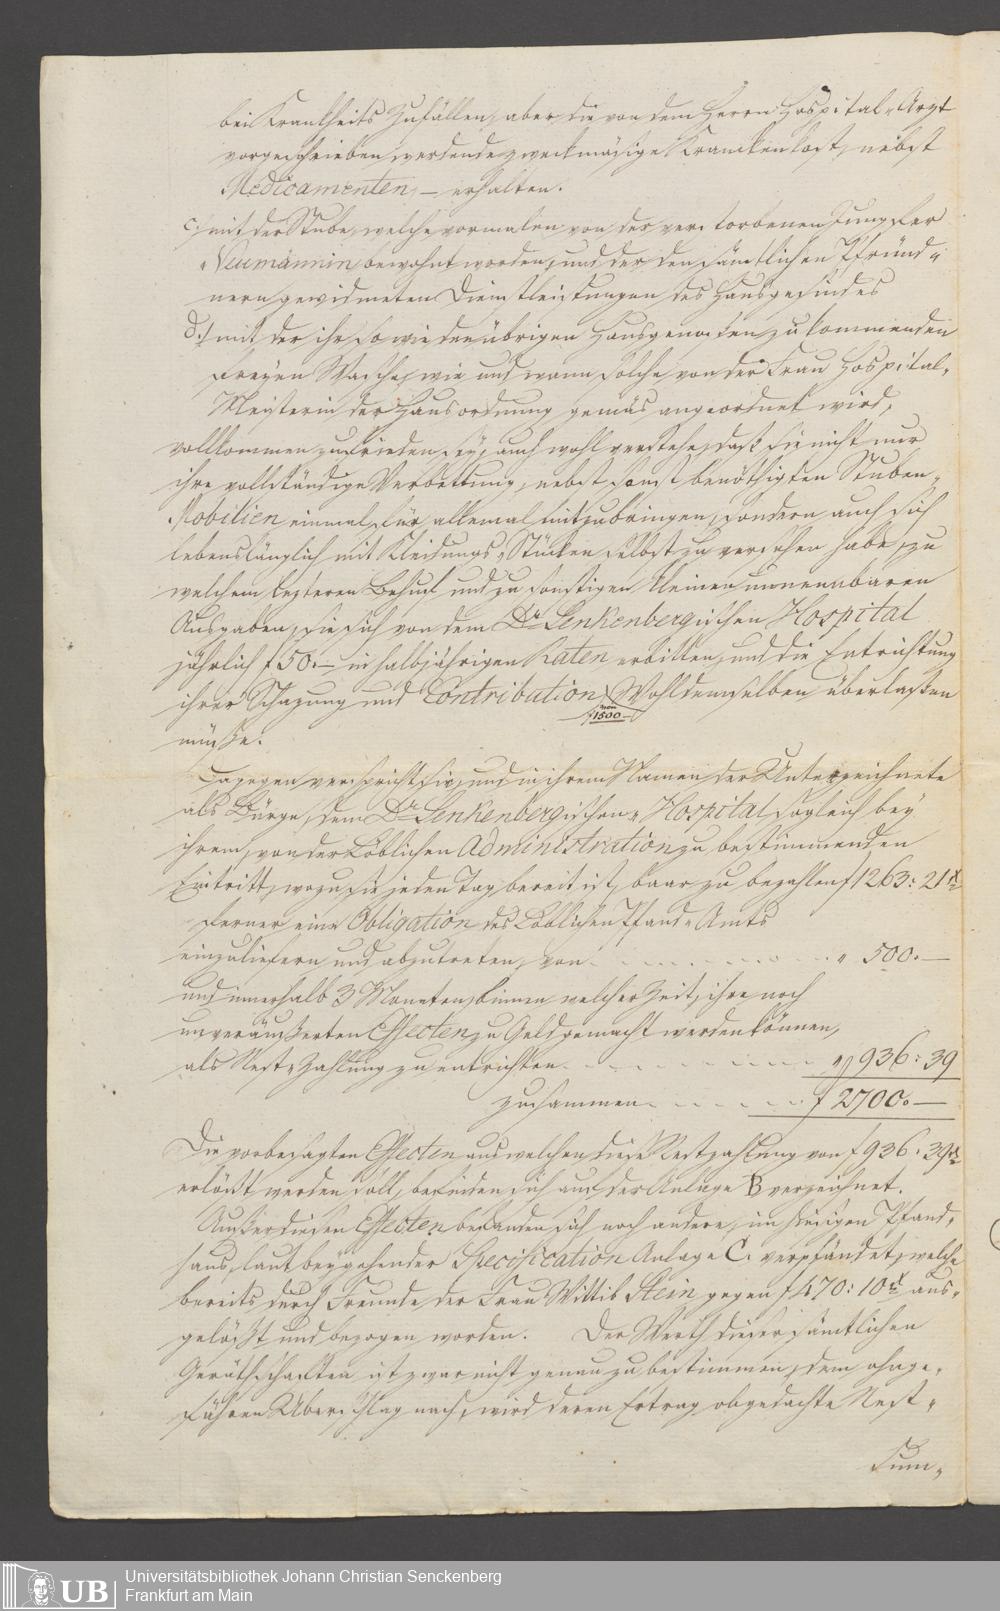 bei Krankheits Zufällen, aber die von dem Herrn Hospital-Arzt
vorgeschrieben werdende zweckmäsige Krancken kost, nebst
Medicamenten, — erhalten.
c./ mit der Stube, welche vormalen von der verstorbenen Jungfer
Neumännin bewohnt worden, und der den sämtlichen Pfründ-
nern gewidmeten Dienstleistungen des Hausgesindes
d./ mit der ihr so wie den übrigen Hausgenossen zu kommenden
freyen Wasche, wie und wann solche von der Frau Hospital-
Meisterin der Hausordnung gemäs angeordnet wird,
vollkommen zufrieden sey, auch wohl verstehe, daß sie nicht nur
ihre vollständige Verbettung, nebst sonst benöthigten Stuben-
Mobilien einmal für allemal mitzubringen, sondern auch sich
lebenslänglich mit Kleidungs-Stücken selbst zu versehen habe, zu
welchem lezteren Behuf und zu sonstigen kleinen unnennbaren
Ausgaben, sie sich von dem Dr. Senkenbergischen Hospital
jährlich f 50.— in halbjährigen Raten erbitten, und die Entrichtung
ihrer Schazung und Contribution Wohldemselben überlaßen
von f 1500—
müße.
Dagegen verspricht sie, und in ihrem Namen der Unterzeichnete
als Bürge, dem Dr. Senkenbergischen Hospital sogleich bey
ihrem, von der Löblichen Administration zu bestimmenden
Eintritt, wozu sie jeden Tag bereit ist, baar zu bezahlen f 1263: 21 x
ferner eine Obligation des Löblichen Pfand-Amts
einzuliefern und abzutreten, von " 500.—
und innerhalb 3 Monaten, binnen welcher Zeit, ihre noch
unveräußerten Effecten zu Geld gemacht werden können,
als Rest-Zahlung zu entrichten " 936: 39
zusammen f 2700.—
Die vorbesagten Effecten aus welchen diese Restzahlung von f 936: 39 x
erlößt werden soll, befinden sich auf der Anlage B verzeichnet.
Außer diesen Effecten befanden sich noch andere, im hiesigen Pfand-
haus, laut beygehender Specification Anlage C. verpfändet, welche
bereits durch Freunde der Frau Wittib Stein gegen f 470: 10 x aus-
gelößt und bezogen worden. Der Werth dieser sämtlichen
Geräthschaften ist zwar nicht genau zu bestimmen, dem ohnge-
fähren Uberschlag nach, wird deren Ertrag obgedachte Rest-
Sum-
UB Universitätsbibliothek Johann Christian Senckenberg
Frankfurt am Main